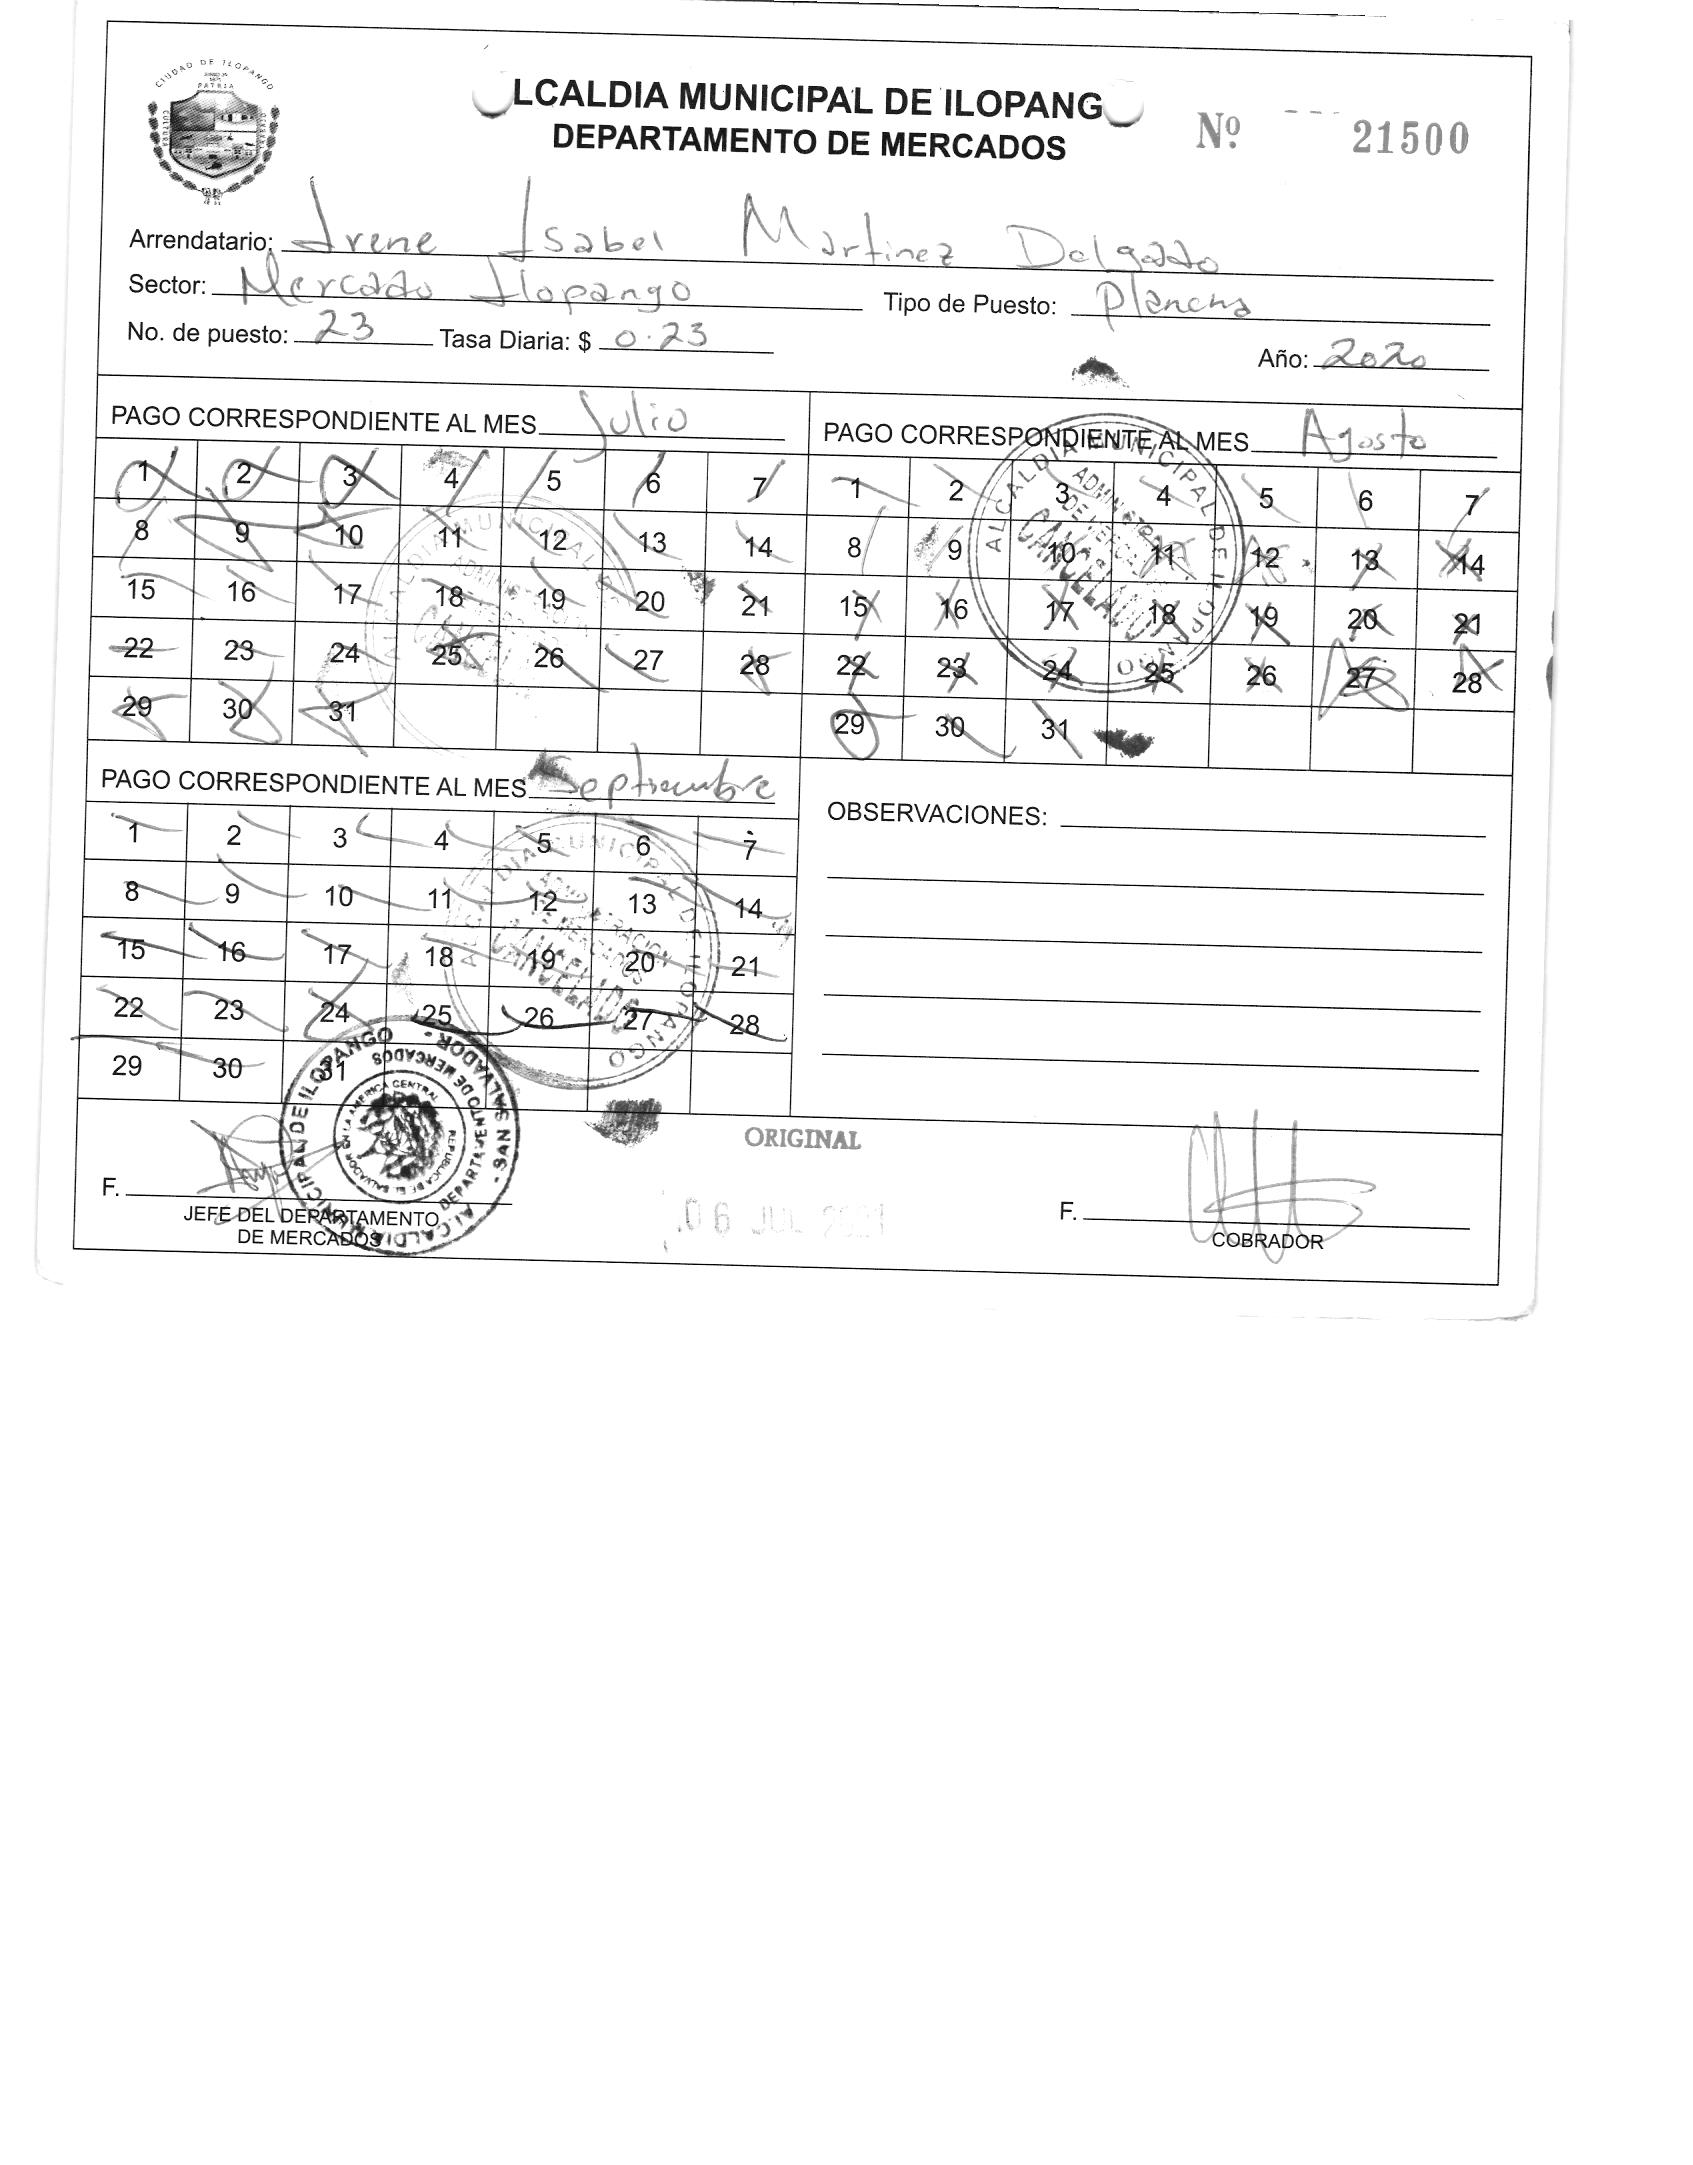 CIUDAD DE ILOPANGO
PATRIA
CULTURA
LCALDIA MUNICIPAL DE ILOPANG
DEPARTAMENTO DE MERCADOS
Nº 21500
Arrendatario: Irene Isabel Martinez Delgado
Sector: Mercado Ilopango Tipo de Puesto: Plancha
No. de puesto: 23 Tasa Diaria: $ 0.23
Año: 2020
PAGO CORRESPONDIENTE AL MES Julio
1 2 3 4 5 6 7
8 9 10 11 12 13 14
15 16 17 18 19 20 21
22 23 24 25 26 27 28
29 30 31
PAGO CORRESPONDIENTE AL MES Agosto
1 2 3 4 5 6 7
8 9 10 11 12 13 14
15 16 17 18 19 20 21
22 23 24 25 26 27 28
29 30 31
ALCALDIA MUNICIPAL DE ILOPANGO
CANCELADO
PAGO CORRESPONDIENTE AL MES Septiembre
1 2 3 4 5 6 7
8 9 10 11 12 13 14
15 16 17 18 19 20 21
22 23 24 25 26 27 28
29 30 31
ALCALDIA MUNICIPAL DE ILOPANGO
ADMINISTRACION
DE MERCADOS
CANCELADO
OBSERVACIONES:
ALCALDIA MUNICIPAL DE ILOPANGO - SAN SALVADOR -
DEPARTAMENTO DE MERCADOS
REPUBLICA DE EL SALVADOR EN LA AMERICA CENTRAL
ORIGINAL
06 JUL 2021
F.
JEFE DEL DEPARTAMENTO
DE MERCADOS
F.
COBRADOR